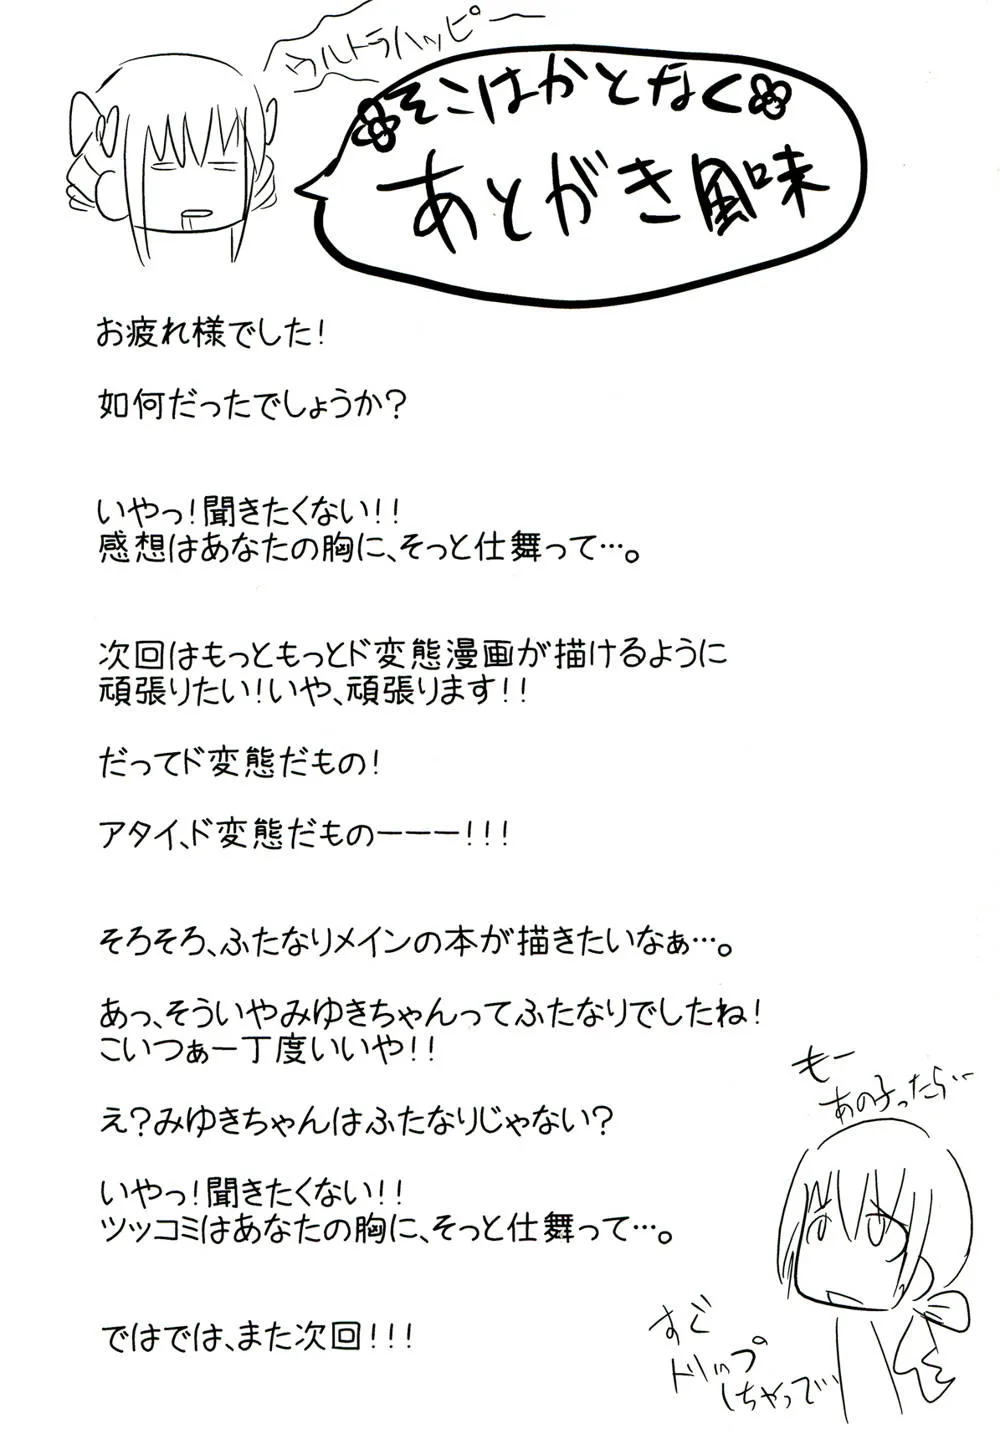 ウルトラハッピー
そこはかとなく
あとがき風味
お疲れ様でした!
如何だったでしょうか?
いやっ!聞きたくない!!
感想はあなたの胸に、そっと仕舞って…。
次回はもっともっとド変態漫画が描けるように
頑張りたい!いや、頑張ります!!
だってド変態だもの!
アタイ、ド変態だものーーー!!!
そろそろ、ふたなりメインの本が描きたいなぁ…。
あっ、そういやみゆきちゃんってふたなりでしたね!
こいつぁ一丁度いいや!!
え?みゆきちゃんはふたなりじゃない?
いやっ!聞きたくない!!
ツッコミはあなたの胸に、そっと仕舞って…。
ではでは、また次回!!!
もー
あの子ったら…
すぐ
トリップ
しちゃって…